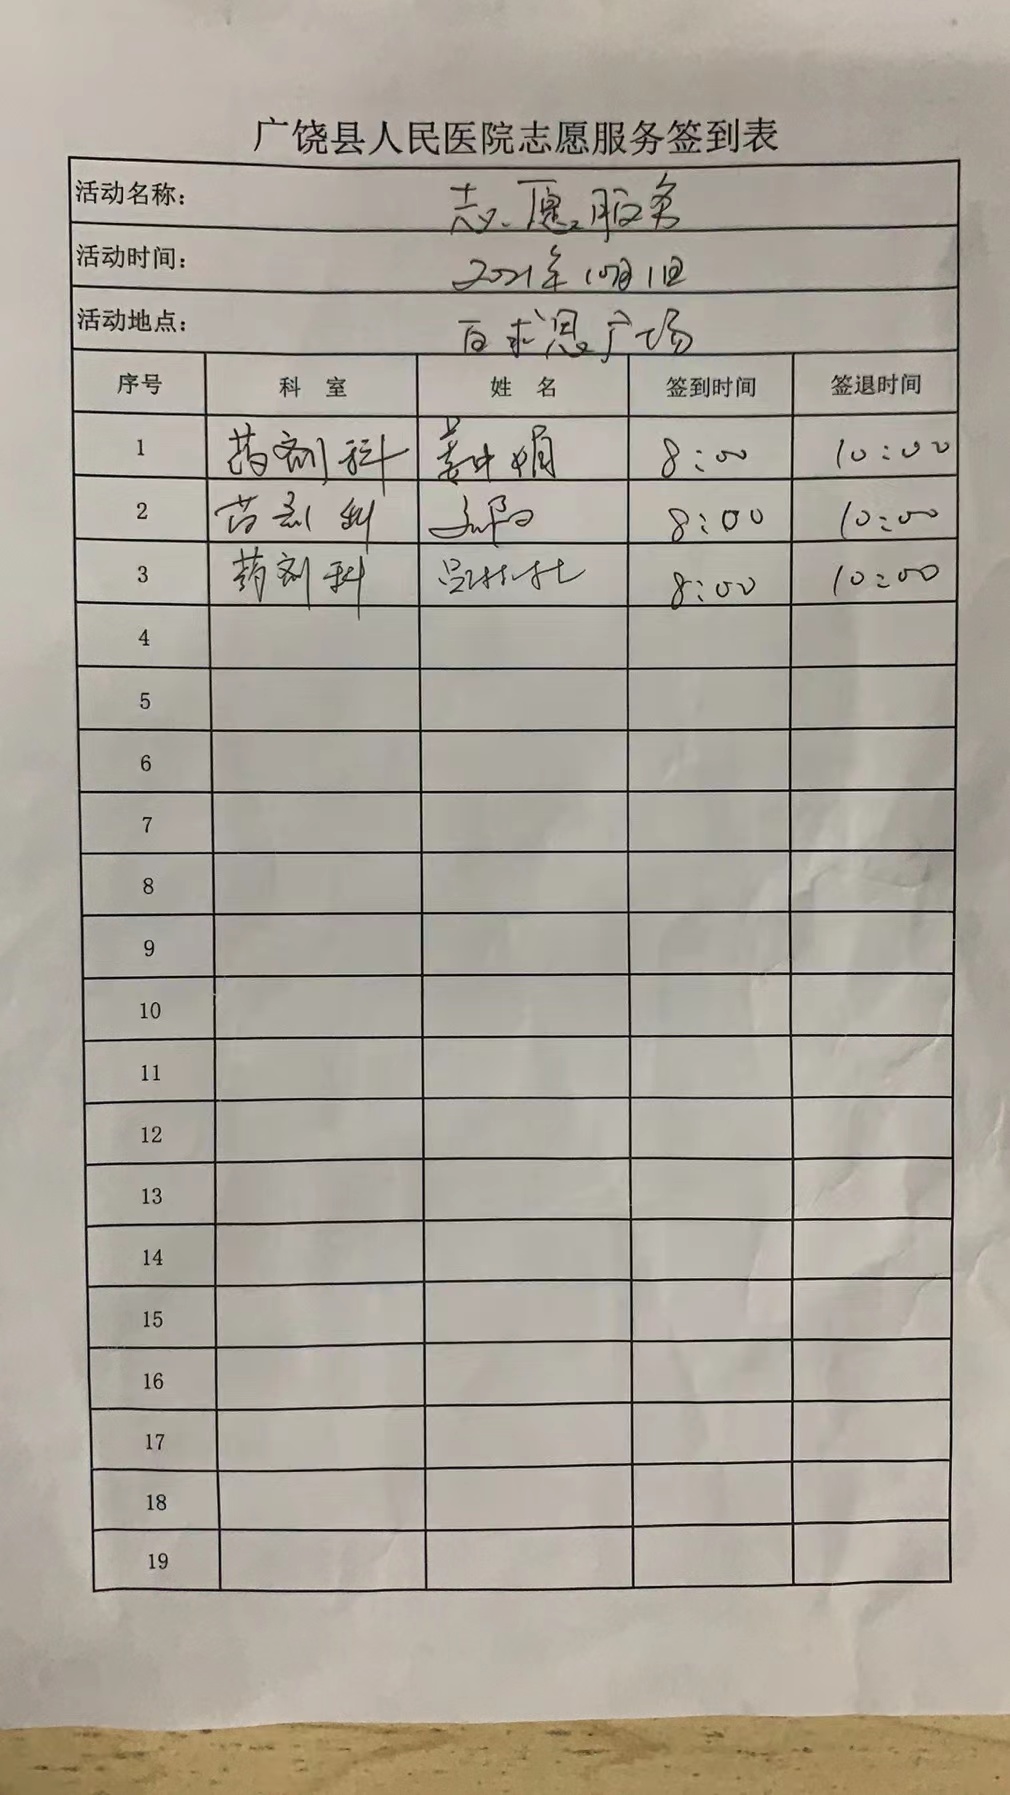 广饶县人民医院志愿服务签到表
活动名称： 志愿服务
活动时间： 2021年10月1日
活动地点： 百求恩广场
序号 科 室 姓 名 签到时间 签退时间
1 药剂科 8:00 10:00
2 药剂科 8:00 10:00
3 药剂科 8:00 10:00
4
5
6
7
8
9
10
11
12
13
14
15
16
17
18
19